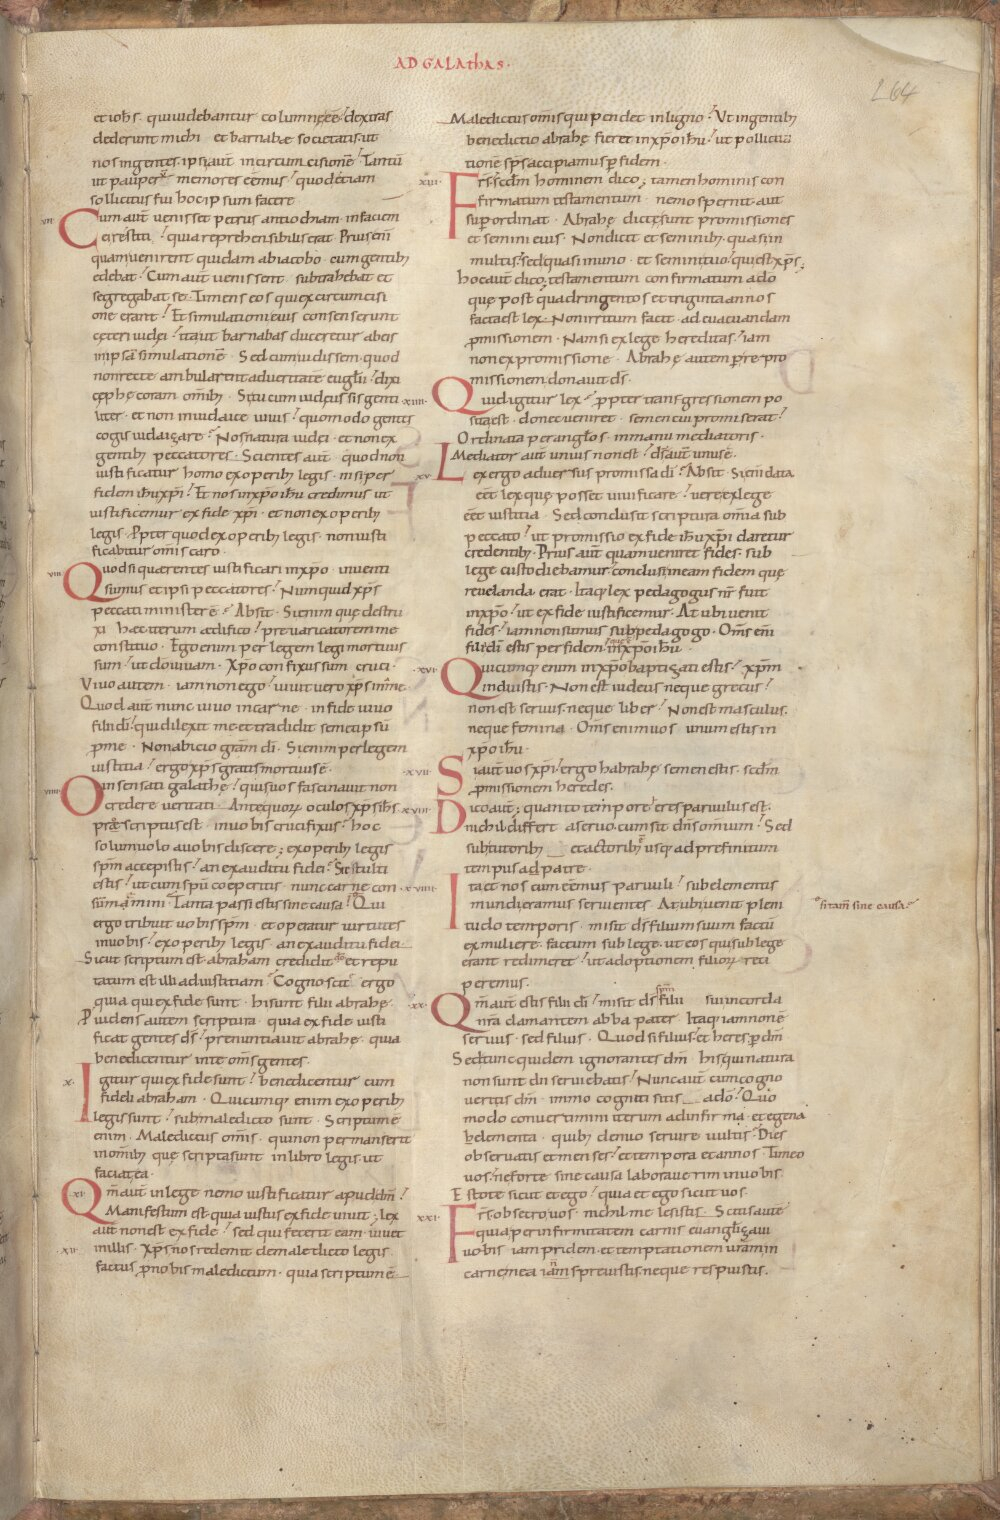 AD GALAthAS·
264
et ioh̅s· qui uidebantur columnę ee̅· dextras
dederunt michi et barnabae societatis· ut
nos in gentes· ipsi aut̅ in circumcisione̅· Tantu̅
ut pauperu̅ memores ee̅mus· quod etiam
sollicitus fui hoc ipsum facere
·vii· Cum aut̅ uenisset petrus antiochiam· in faciem
ei restiti· quia reprehensibilis erat· Prius eni̅
quam uenirent quidam ab iacobo· cum gentib;
edebat· Cum aut̅ uenissent subtrahebat et
segregabat se· Timens eos qui ex circumcisi
one erant· Et simulationi eius consenserunt
cęteri iudęi· ita ut barnabas duceretur ab eis
in ipsa̅ simulatione̅· Sed cum uidissem· quod
non recte ambularent ad ueritate̅ eugl̅ii· dixi
cephę coram omib;· Si tu cum iudeus sis genti
liter· et non iudaice uiuis· quomodo gentes
cogis iudaizare· Nos natura iudęi· et non ex
gentib; peccatores· Scientes aut̅ quod non
iustificatur homo ex operib; legis· nisi per
fidem ih̅u xp̅i· Et nos in xp̅o ih̅u credimus ut
iustificemur ex fide xp̅i· et non ex operib;
legis· Ppter quod ex operib; legis· non iusti
ficabitur om̅is caro·
·viii· Quod si quaerentes iustificari in xp̅o· inuenti
sumus et ipsi peccatores· Numquid xp̅s
peccati minister e̅· Absit· Si enim quę destru
xi haec iterum aedifico· preuaricatorem me
constituo· Ego enim per legem legi mortuus
sum· ut d̅o uiuam· Xp̅o confixus sum cruci·
Viuo autem· iam non ego· uiuit uero xp̅s in me·
Quod aut̅ nunc uiuo in carne· in fide uiuo
filii d̅i· qui dilexit me· et tradidit semetipsu̅
p̱ me· Non abicio gra̅m d̅i· Si enim per legem
iustitia· ergo xp̅s gratis mortuus e̅·
·viiii· O insensati galathę· quis uos fascinauit non
credere ueritati· Ante quor̄ oculos xp̅s ih̅s
prae̅scriptus est· in uobis crucifixus· hoc
solum uolo a uobis discere; ex operib; legis
sp̅m accepistis· an ex auditu fidei· Sic stulti
estis· ut cum sp̅u coeperitis nunc carne con
sum̅amini· Tanta passi estis sine causa· Qui
ergo tribuit uobis sp̅m· et operatur uirtutes
in uobis· ex operib; legis· an ex auditu fidei
Sicut scriptum est· abraham credidit d̅o et repu
tatum est illi ad iustitiam· Cognoscite ergo
quia qui ex fide sunt· hi sunt filii abrahę·
Puidens autem scriptura· quia ex fide iusti
ficat gentes d̅s· prenuntiauit abrahę· quia
benedicentur in te om̅s gentes·
·x· Igitur qui ex fide sunt· benedicentur cum
fideli abraham· Quicumq; enim ex operib;
legis sunt· sub maledicto sunt· Scriptum e̅
enim· Maledictus om̅is· qui non permanserit
in om̅ib; quę scripta sunt in libro legis· ut
faciat ea·
·xi· Qm̅ aut̅ in lege nemo iustificatur apud d̅m·
Manifestum est· quia iustus ex fide uiuit; lex
aut̅ non est ex fide· sed qui fecerit eam· uiuet
·xii· in illis· Xp̅s nos redemit de maledicto legis·
factus p̱ nobis maledictum· quia scriptum e̅
Maledictus om̅is qui pendet in ligno· Ut in gentib;
benedictio abrahę fieret in xp̅o ih̅u· ut pollicita
tione̅ sp̅s accipiamus p̱ fidem·
·xiii· Frs̅· scd̅m hominem dico; tamen hominis con
firmatum testamentum· nemo spernit aut
sup̱ordinat· Abrahę dictę sunt promissiones
et semini eius· Non dicit et seminib;· quasi in
multis· sed quasi in uno· et semini tuo· qui est xp̅s;
hoc aut̅ dico· testamentum confirmatum a d̅o
quę post quadringentos et triginta annos
facta est lex· Non irritum facit· ad euacuandam
p̱missionem· Nam si ex lege hereditas· iam
non ex promissione· Abrahę autem p̱ re pro
missionem donauit d̅s·
·xiiii· Quid igitur lex· p̱pter transgressionem po
sita est· donec ueniret semen cui promiserat·
Ordinata per angl̅os· in manu mediatoris·
Mediator aut̅ unius non est· d̅s aut̅ unus e̅·
·xv· Lex ergo aduersus promissa d̅i· Absit· Si eni̅ data
ee̅t lex quę posset uiuificare· uere ex lege
ee̅t iustitia· Sed conclusit scriptura om̅ia sub
peccato· ut promissio ex fide ih̅u xp̅i daretur
credentib;· Prius aut̅ quam ueniret fides· sub
lege custodiebamur· conclusi in eam fidem quę
reuelanda erat· Itaq; lex pedagogus nr̅ fuit
in xp̅o· ut ex fide iustificemur· At ubi uenit
fides· iam non sumus sub pedagogo· Om̅s eni̅
filii d̅i estis per fidem· quę e̅ in xp̅o ih̅u·
·xvi· Quicumq; enim in xp̅o baptizati estis· xp̅m
induistis· Non est iudeus neque grecus·
non est seruus· neque liber· Non est masculus·
neque femina· Om̅s enim uos unum estis in
xp̅o ih̅u·
·xvii· Si aut̅ uos xp̅i· ergo habrahę semen estis· scd̅m
p̱missionem heredes·
·xviii· Dico aut̅; quanto tempore heres paruulus est·
nichil differt a seruo· cum sit dn̅s omnium· Sed
sub tutorib; et actorib; e̅ usq; ad prefinitum
tempus a patre·
·xviiii· Ita et nos cum ee̅mus paruuli· sub elementis
mundi eramus seruientes· At ubi uenit pleni
tudo temporis· misit d̅s filium suum factu̅
ex muliere· factum sub lege· ut eos qui sub lege
erant redimeret· ut adoptionem filior̄ reci
peremus·
·xx· Qm̅ aut̅ estis filii d̅i· misit d̅s sp̅m filii sui in corda
nr̅a clamantem abba pater· Itaq; iam non e̅
seruus· sed filius· Quod si filius· et heres p̱ d̅m
Sed tunc quidem ignorantes d̅m· his qui natura
non sunt dii seruiebatis· Nunc aut̅ cum cogno
ueritis d̅m· immo cogniti sitis a d̅o· Quo
modo conuertimini iterum ad infirma· et egena
elementa· quib; denuo seruire uultis· Dies
obseruatis et menses· et tempora et annos· Timeo
uos· ne forte sine causa laborauerim in uobis
Estote sicut et ego· quia et ego sicut uos·
·xxi· Frs̅· obsecro uos· nichil me lesistis· Scitis aute̅
quia per infirmitatem carnis euangl̅izaui
uobis iam pridem· et temptationem ur̅am in
carne mea non spreuistis· neque respuistis·
si tam̅ sine causa·